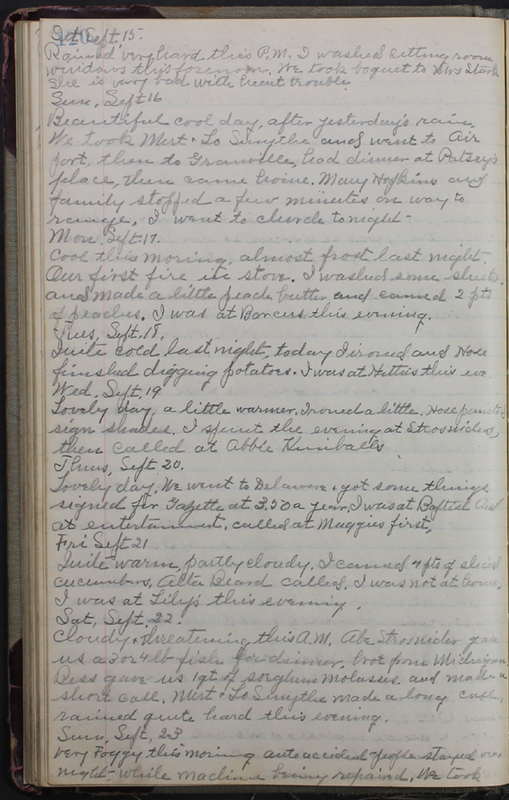 Sat, Sept. 15.
Rained very hard this P.M. I washed sitting room
windows this forenoon. We took boquet to Mrs Stark
She is very bad with heart trouble.
Sun, Sept 16
Beautiful cool day, after yesterday's rain.
We took Mert & Lo Smythe and went to Air
port, then to Granville, had dinner at Patsey's
place, then came home. Mary Hopkins and
family stopped a few minutes on way to
I went to church tonight-
Mon, Sept. 17.
Cool this morning, almost frost last night.
Our first fire in stove. I washed some sheets.
and made a little peach butter and canned 2 pts
of peaches. I was at Barcus this evening.
Tues, Sept. 18.
Quite cold last night, today I ironed and Hose
finished digging potatoes. I was at Hettie's this eve
Wed. Sept. 19
Lovely day, a little warmer. Ironed a little. Hose painted
sign shades. I spent the evening at Strosniders
then called at Abbie Kimballs
Thurs, Sept 20.
Lovely day. We went to Delaware & got some things
signed for Gazette at 3.50 a year. I was at Baptist Aid
at entertainment, called at Maggies first.
Fri Sept 21
Quite warm, partly cloudy. I canned 4 pts of sliced
cucumbers. Alta Beard called, I was not at home.
I was at Lily's this evening.
Sat, Sept. 22.
Cloudy & threatening this A.M. Abe Strosnider gave
us a 3 or 4 lb fish for dinner, brot from Michigan.
Bess gave us 1 qt of sorghum molasses and made a
short call. Mert & Lo Smythe made a long call,
rained quite hard this evening.
Sun, Sept, 23
Very Foggy this morning auto accident people stayed over
night, while machine being repaired. We took